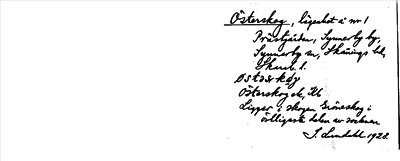 Österskog, lägenhet å nr 1
Prästgården, Synnerby by,
Synnerby sn, Skånings hd,
Skarab. l.
Österskog, Kb
Ligger i skogen Gröneskog i
östligaste delen av socknen
S. Lundahl 1920.